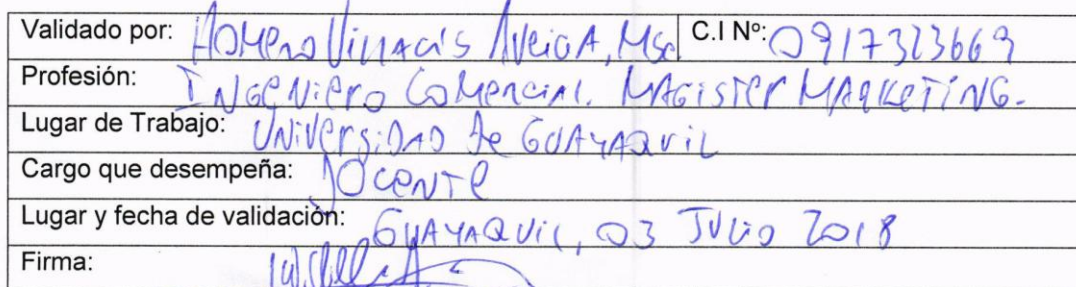 Validado por: Homero Villacís Aveiga, Msc C.I Nº: 0917323669
Profesión: Ingeniero Comercial. Magister Marketing.
Lugar de Trabajo: Universidad de Guayaquil
Cargo que desempeña: Docente
Lugar y fecha de validación: Guayaquil, 03 Julio 2018
Firma: